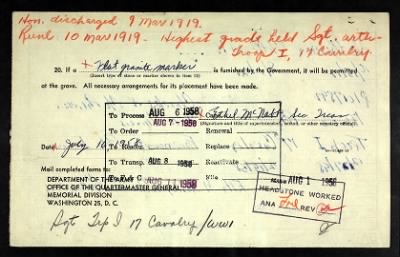 Hon. discharged 9 Mar 1919.
Reenl 10 Mar 1919. Highest grade held Sgt.
Troop I, 17 Cavalry
20. If a flat granite marker is furnished by the Government, it will be permitted
(Insert type of stone or marker shown in item 12)
at the grave. All necessary arrangements for its placement have been made.
To Process AUG 6 1958
To Order AUG 7 - 1958 Renewal
(Signature and title of superintendent, or other cemetery official)
Date July 16, To Replace
To Trans. AUG 8 1958 Reactivate
Mail completed forms to: File
DEPARTMENT OF THE ARMY
OFFICE OF THE QUARTERMASTER GENERAL
MEMORIAL DIVISION
WASHINGTON 25, D. C.
AUG 1 1958
HEADSTONE WORKED
ANA REV
Sgt Trp I 17 Cavalry / WWI